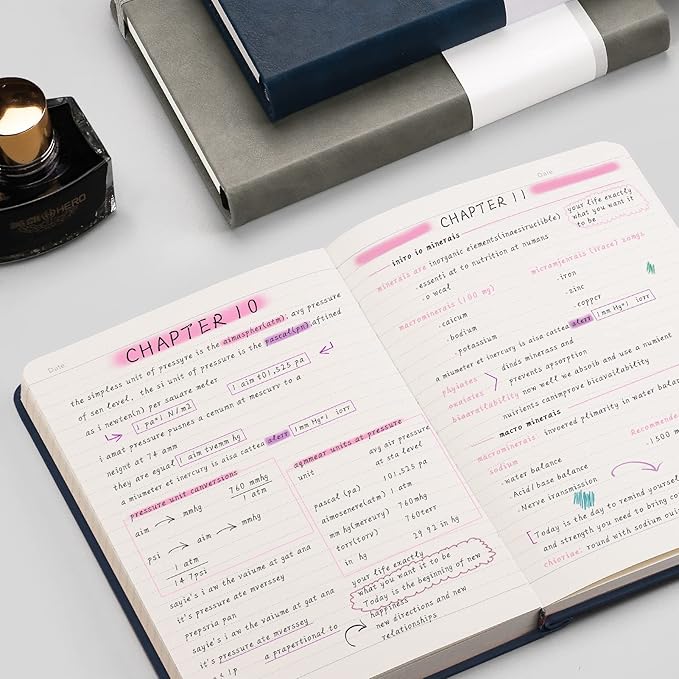 HERO
Date:
CHAPTER 10
the simpless unit of pressyre is the aimaspher(atm). avg pressure
of sen level. the si unit of pressure is the pascal(pn) aftined
as i newten(n) per saquare meler
1 aim t01,525 pa
1 pa=1 N/m2
i amat pressure pusnes a cenunn at mescurv to a
neignt at 74 amm
they are equal 1 aim tvemm hg
a miumeter et inercury is aisa cattea alerr 1 mm Hg=1 iorr
pressure unit canversions
aim → mmhg
760 mmhg
1 atm
psi → aim → mmhg
1 atm
14 7psi
aqmmear units at pressure
unit
avg air pressure
at sta level
pascal (pa) 101,525 pa
aimosenere(atm) 1 atm
mm hg(mereury) 760mhg
torr(torv) 760terr
in hg 29.92 in hg
sayie's i aw the vaiume at gat ana
it's pressure ate mverssey
prepsria pan
sayie's i aw the vaiume at gat ana
it's pressure ate mverssey
a prapertional to
your life exactly
what you want it to be
Today is the beginning of new
happiness
new directions and new
relationships
Date:
CHAPTER 11
your life exactly
what you want it
to be
iniro io minerais
minerais are inorganic elements(inaesiruciible)
. essenti at to nutrition at numans
. o wcal
macrominerais (100 mg)
. caicum
. bodium
. potassium
micramjenrais (irace) zomgs
. iron
. zinc
. coppcr
a miumeter et inercury is aisa cattea alerr 1 mm Hg=1 iorr
phyiates
oxaiates
dinds minerass and
prevents apsorption
bioarailability now well we absoib and use a numient
nutirients canimprove bicavailability
macro minerais
macrominerais invoered plimarity in water balance
sodium
Recommende
. 1,500 m
. water balance
. Acid/ base balance
. Nerve iransmission
Today is the day to remind yourself
and strength you need to bring
chioriae: round with sodium